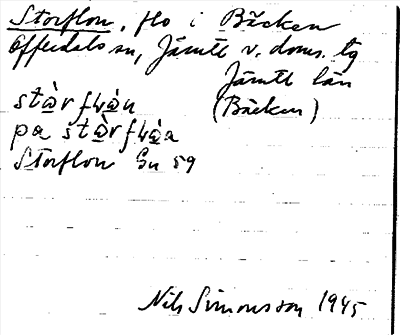 Storflon, flo i Bäcken
Offerdals sn, Jämtl v. doms. tg
Jämtl län
(Bäcken)
stàrflo̱n
pa stàrfloa
Storflon Gn 59
Nils Simonsson 1945